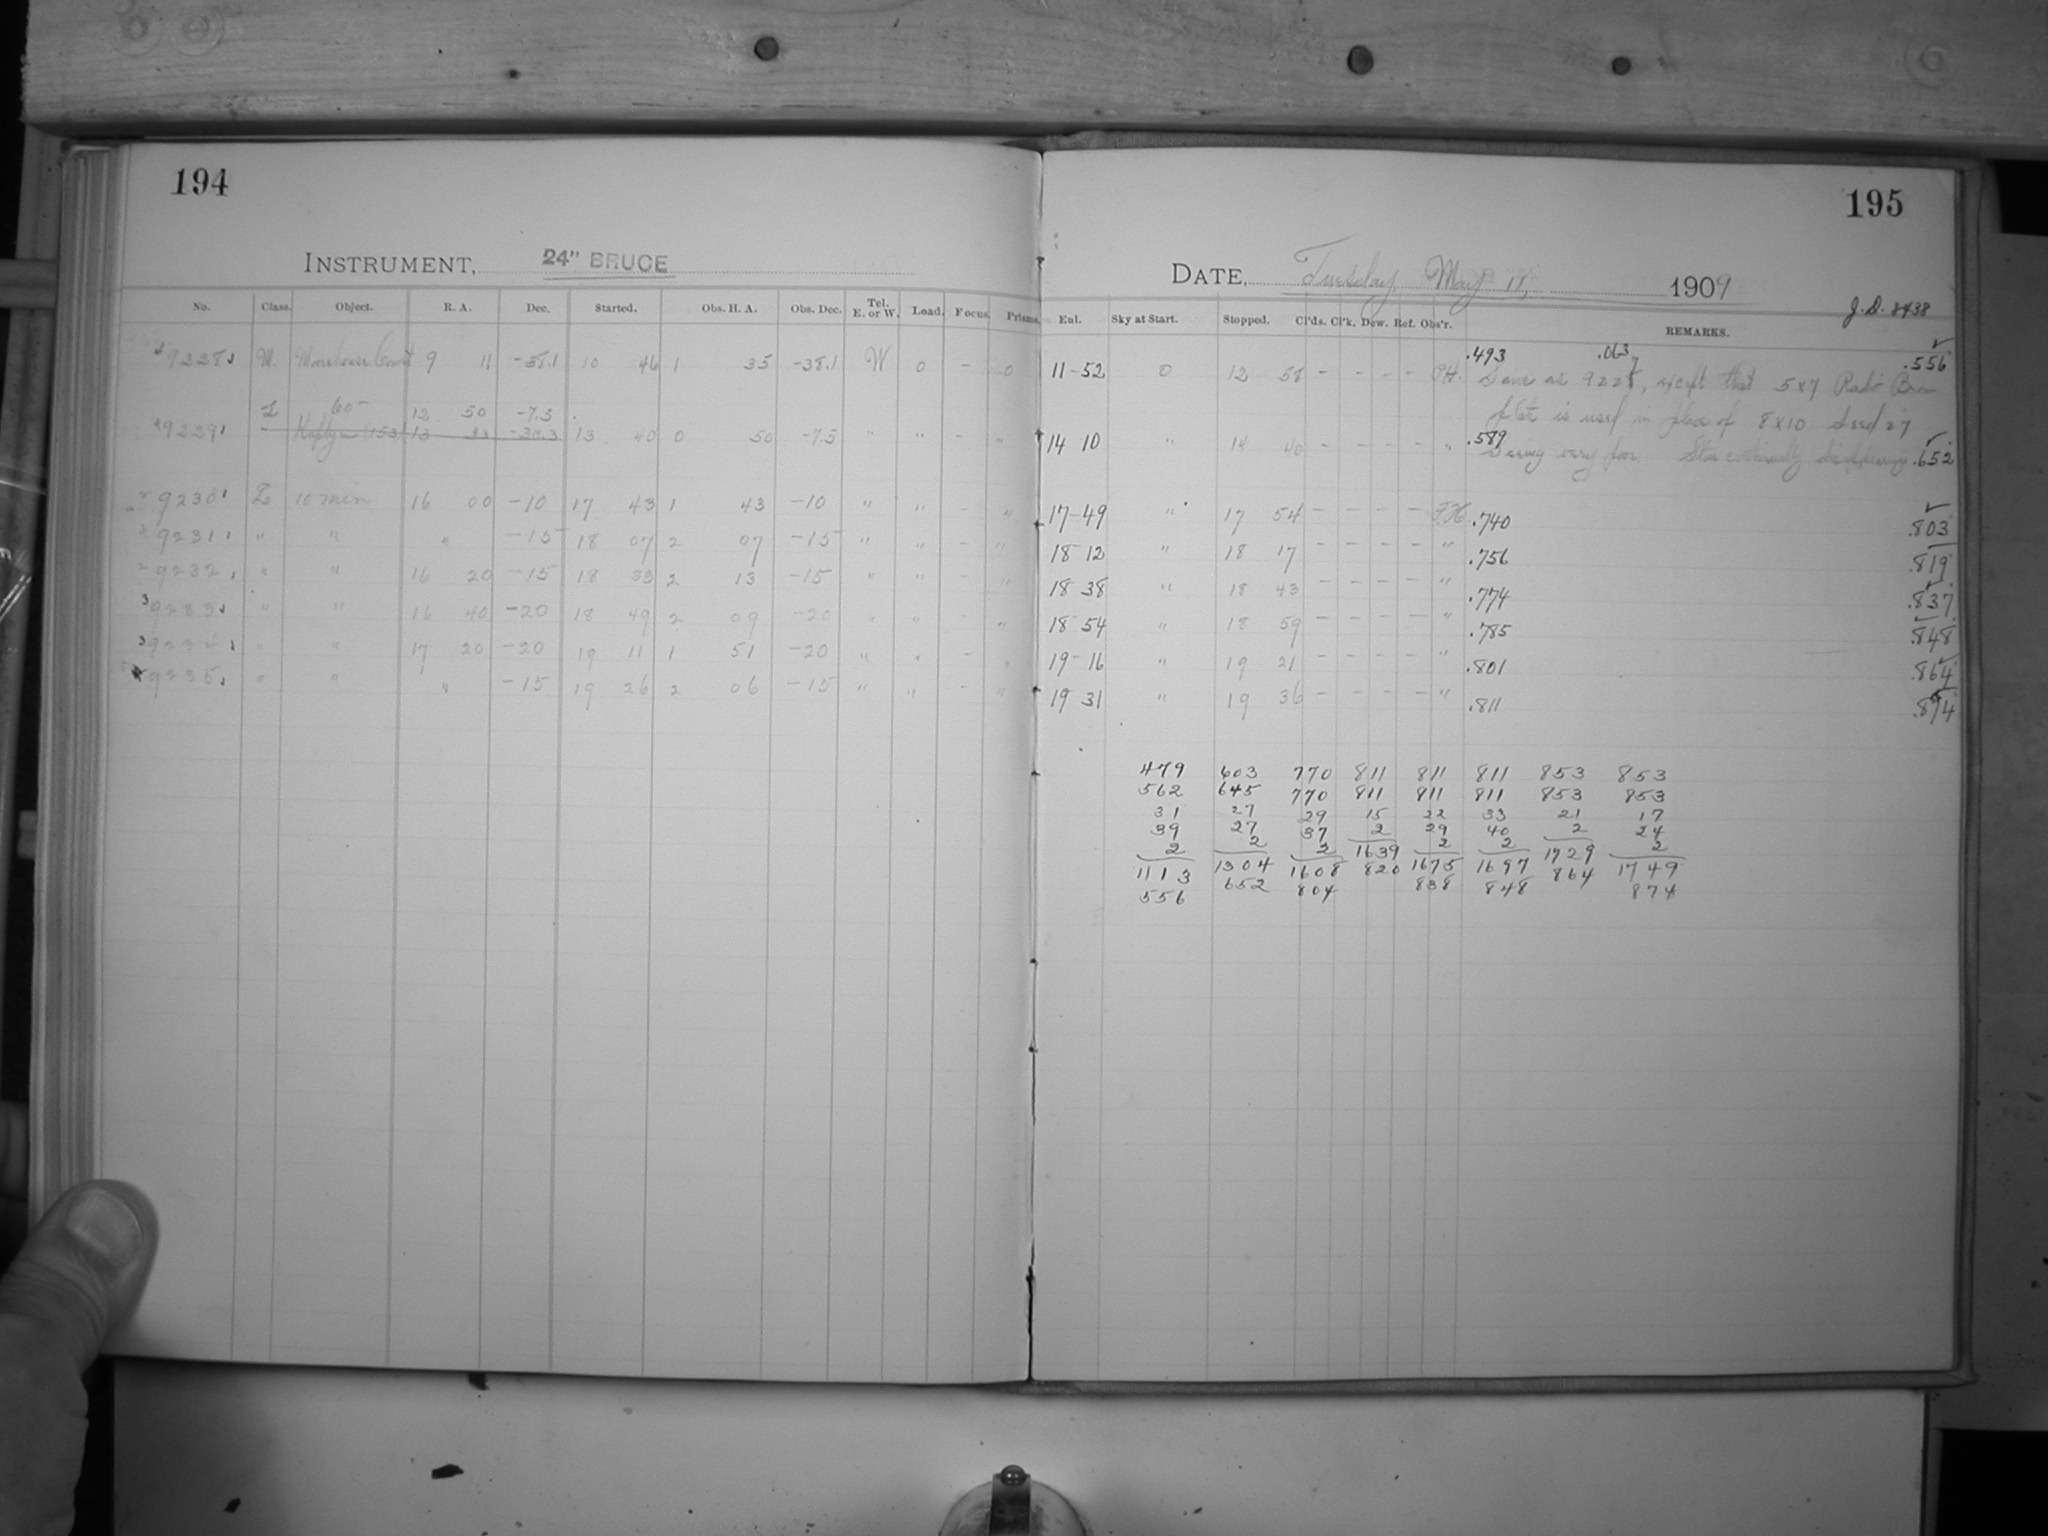 194
INSTRUMENT, 24" BRUCE
No. Class. Object. R. A. Dec. Started. Obs. H. A. Obs. Dec. Tel. E. or W. Load. Focus. Prisms.
9228 M. Morehouse Comet 9 11 -38.1 10 46 1 35 -38.1 W 0 - 0
L 60- 12 50 -7.5
9229 13 33 -30.3 13 40 0 50 -7.5 " " - "
9230 L 10 min 16 00 -10 17 43 1 43 -10 " " - "
9231 " " " -15 18 07 2 07 -15 " " - "
9232 " " 16 20 -15 18 33 2 13 -15 " " - "
9233 " " 16 40 -20 18 49 2 09 -20 " " - "
9234 " " 17 20 -20 19 11 1 51 -20 " " - "
9235 " " " -15 19 26 2 06 -15 " " - "
195
DATE, Tuesday May 18, 1909
J.D. 8438
Enl. Sky at Start. Stopped. Cl'ds. Cl'k. Dew. Ref. Obs'r. REMARKS.
.493 .063 .556
11-52 0 12 58 - - - - Same as 9227, except that 5x7
plate is used in place of 8x10 Seed 27
14 10 " 14 40 - - - - " .589 Seeing very poor. Star continually disappearing .652
17-49 " 17 54 - - - - .740 .803
18 12 " 18 17 - - - - " .756 .819
18 38 " 18 43 - - - - " .774 .837
18 54 " 18 59 - - - - " .785 .848
19-16 " 19 21 - - - - " .801 .864
19 31 " 19 36 - - - - " .811 .874
479 603 770 811 811 811 853 853
562 645 770 811 811 811 853 853
31 27 29 15 22 33 21 17
39 27 37 2 29 40 2 24
2 2 2 1639 2 2 1729 2
1113 1304 1608 820 1675 1697 864 1749
556 652 804 838 848 874